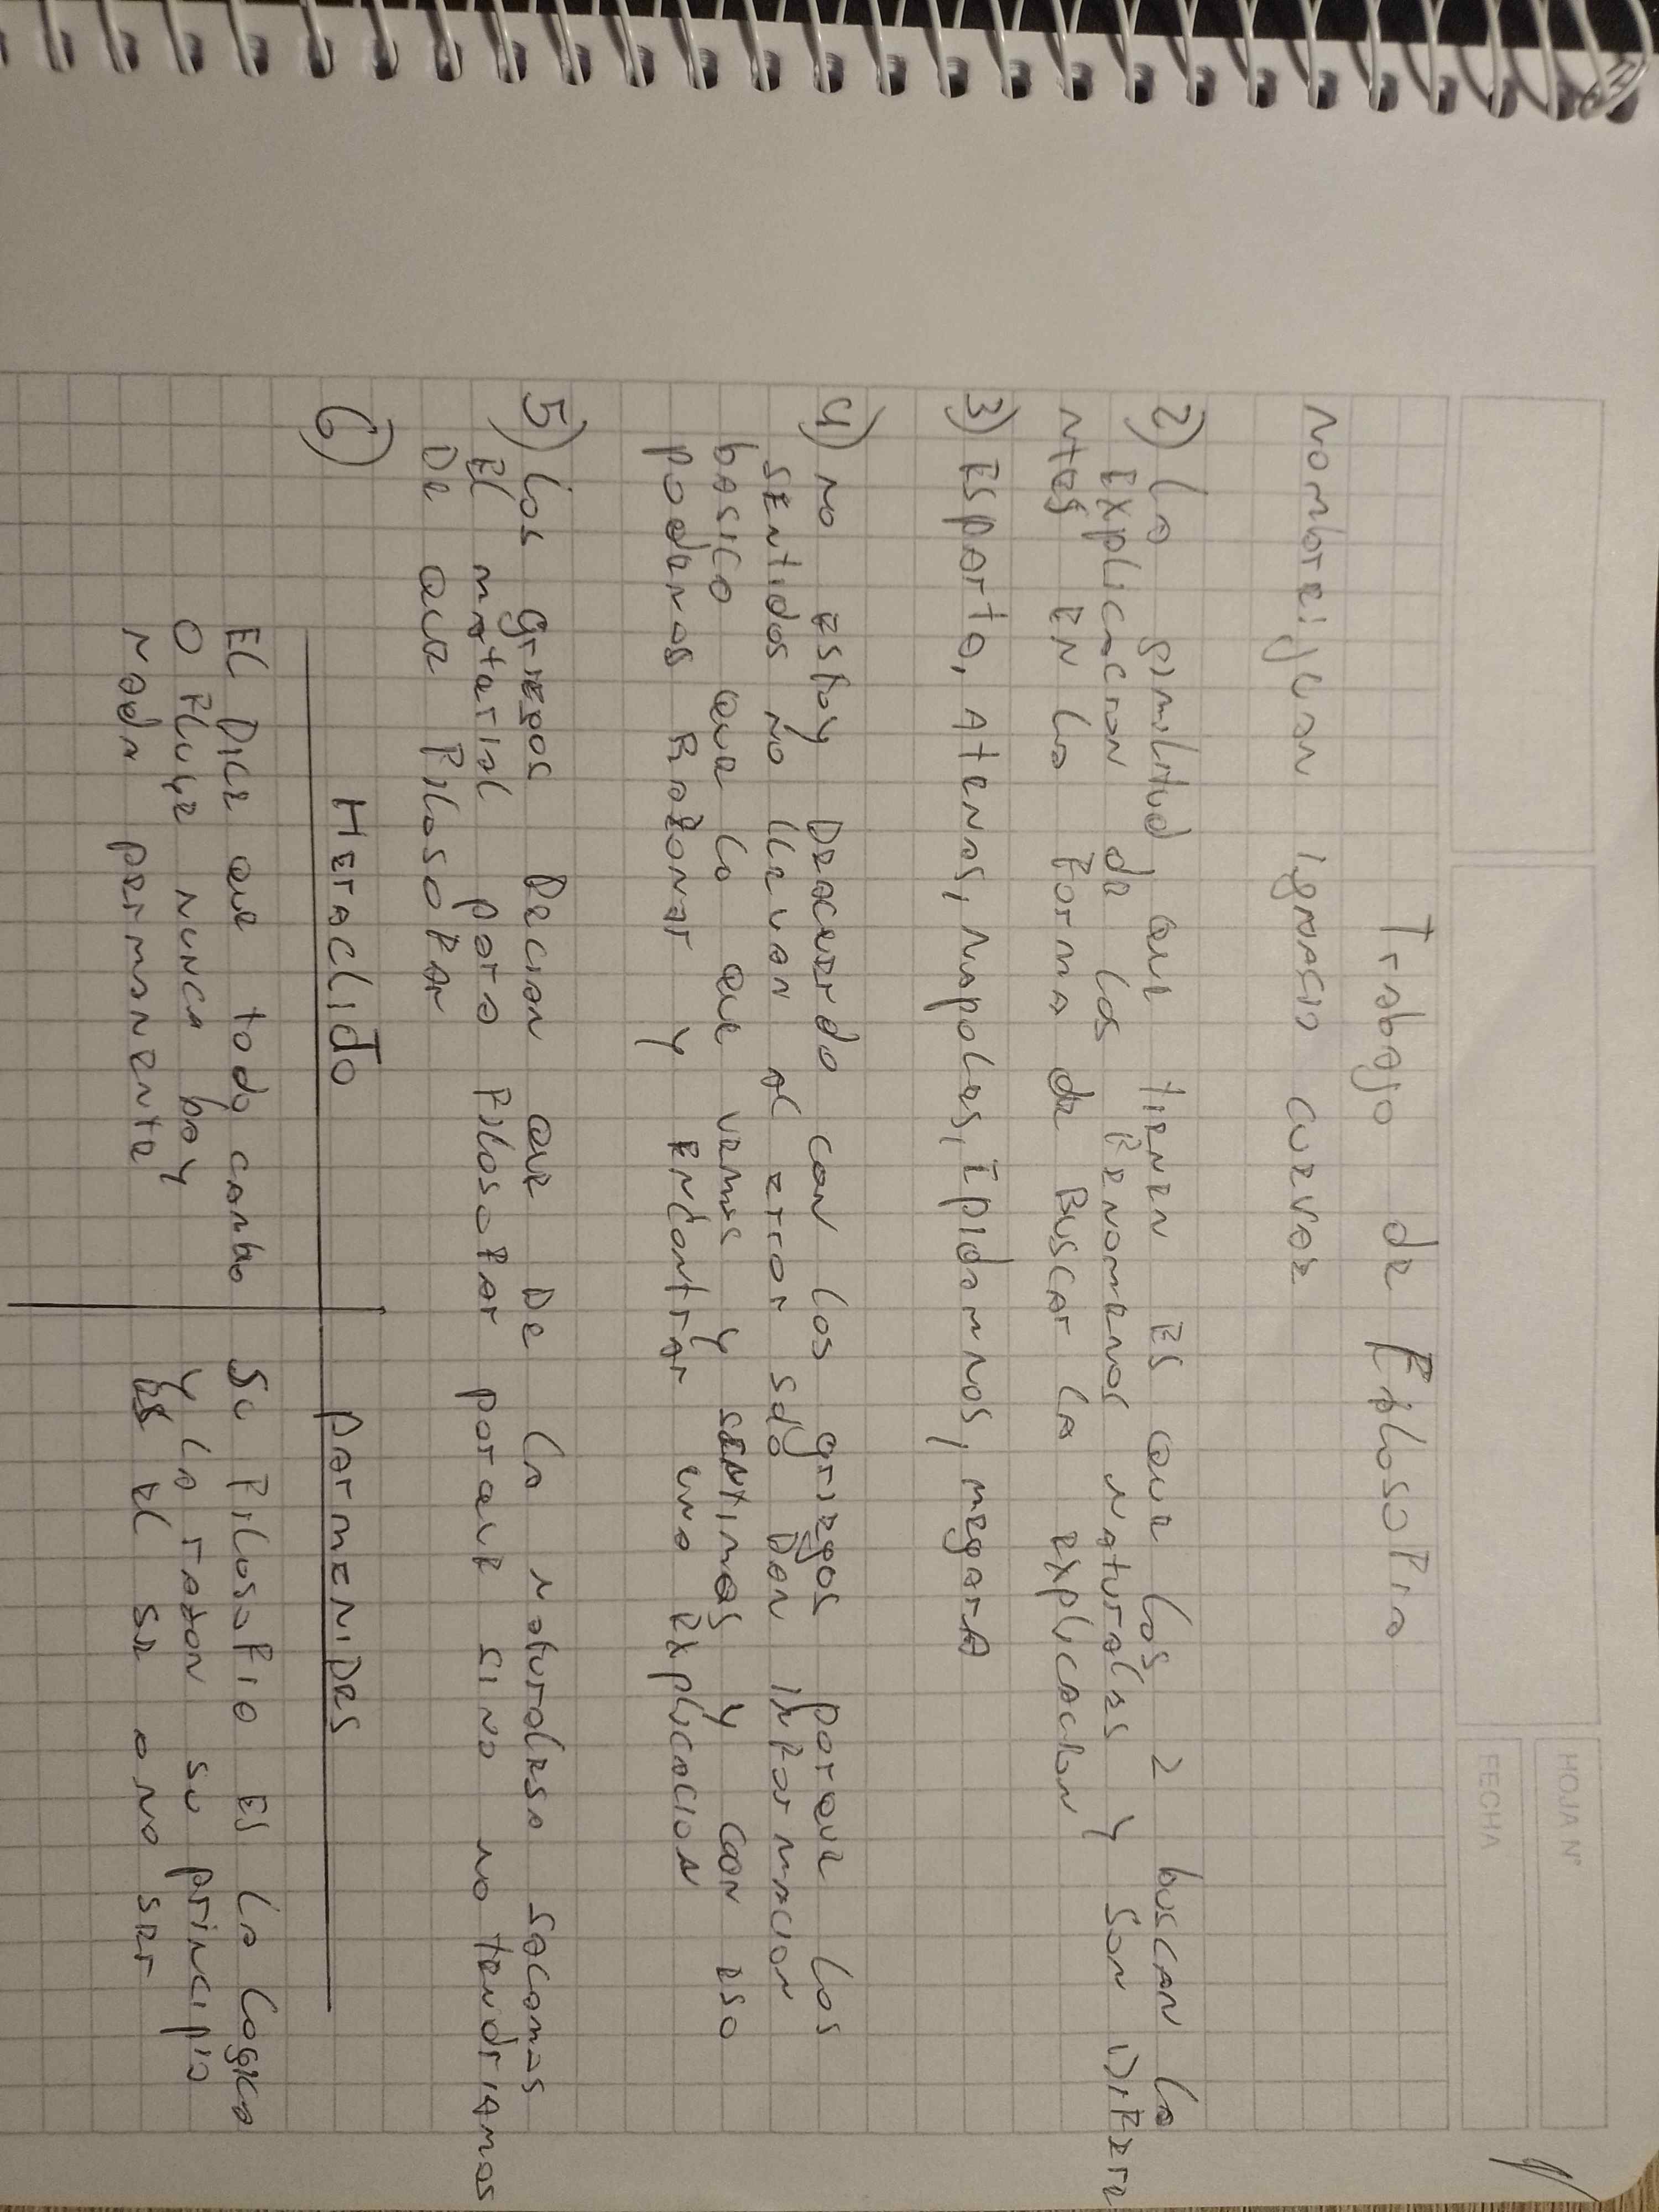 HOJA N°
FECHA
Trabajo de Filosofia
nombre: juan ignacio cuevas
2) la similitud que tienen es que los 2 buscan la
explicacion de los fenomenos naturales y son Difere
ntes en la forma de Buscar la explicacion
3) Esparta, Atenas, napoles, Epidamnos, megara
4) no estoy Deacuerdo con los griegos porque los
sentidos no llevan al error solo Dan informacion
basico que lo que vemos y sentimos y con eso
podemos Razonar y encontrar una explicacion
5) los griegos Decian que De la naturalesa sacamos
El material para filosofar porque sino no tendriamos
De que filosofar
6)
Heraclito
parmenides
El Dice que todo cambia
o fluye nunca hay
nada permanente
Su filosofia es la logica
y la razon su principio
es el se o no ser